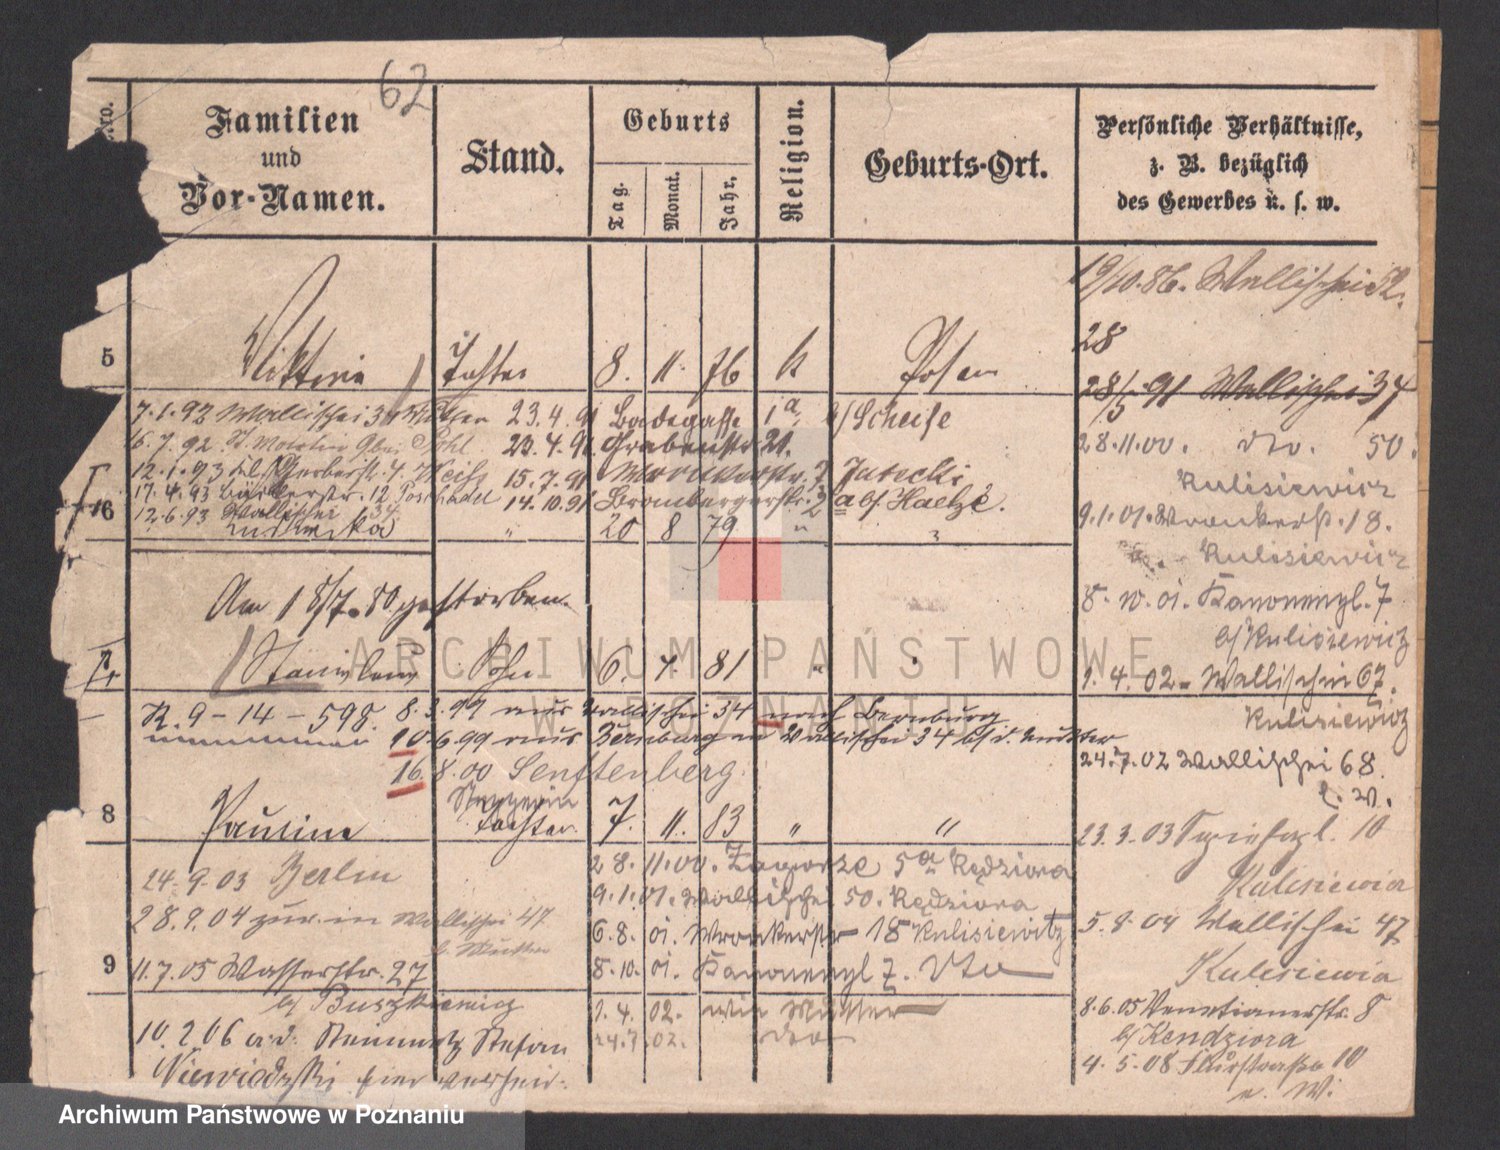 62
Nro.
Familien
und
Vor-Namen.
Stand.
Geburts
Tag.
Monat.
Jahr.
Religion.
Geburts-Ort.
Persönliche Verhältnisse,
z. B. bezüglich
des Gewerbes u. s. w.
19/10.86. Wallischei 52.
28
5 Viktoria Tochter 8. 11. 76 k Posen
28/5 91 Wallischei 34
7.1.92 Wallischei 34 Mutter 23.4.91 Badegasse 1a b/ Scheise
16.7.92. 23.4.91. Grabenstr. 21.
28.11.00. dto. 50.
12.1.93 Kl. Gerberst. 4 15.7.91
Kulisiewicz
17.4.93 12 14.10.91 Brombergerstr. 2
12.6.93 Wallischei 34
6 Ludwika " 20 8 79 " "
9.1.01. Wronkerst. 18.
Kulisiewicz
Am 18/7.80 gestorben.
8.10.01. Kanonenpl. 7
b/ Kulisiewicz
7 Stanislaus Sohn 6. 4 81 " "
1.4.02. Wallischei 67.
Kulisiewicz
R. 9-14-598. 8.3.99 aus Wallischei 34 nach Bernburg
10.6.99 aus Bernburg n Wallischei 34 b/ d. Mutter
24.7.02 Wallischei 68.
16.8.00 Senftenberg.
8 Pauline Tochter. 7. 11. 83 " "
23.3.03 10
Kulisiewicz
24.9.03 Berlin
28.11.00. Zagorze 5a Kędziora
9.1.01. Wallischei 50. Kędziora
28.9.04 zur. in Wallischei 47
b. Mutter
6.8.01. Wronkerstr 18 Kulisiewitz
5.8.04 Wallischei 47
Kulisiewicz
9 11.7.05 Wasserstr. 27
8.10.01. Kanonenpl 7. dto
b/ Buszkiewicz
1.4.02. wie Mutter
24.7.02. dto
8.6.05 Venetianerstr. 8
b/ Kendziora
10.2.06 a.d. Steinmetz Stefan
Niewiedzki hier verheir.
4.5.08 10
ARCHIWUM PAŃSTWOWE
W POZNANIU
Archiwum Państwowe w Poznaniu